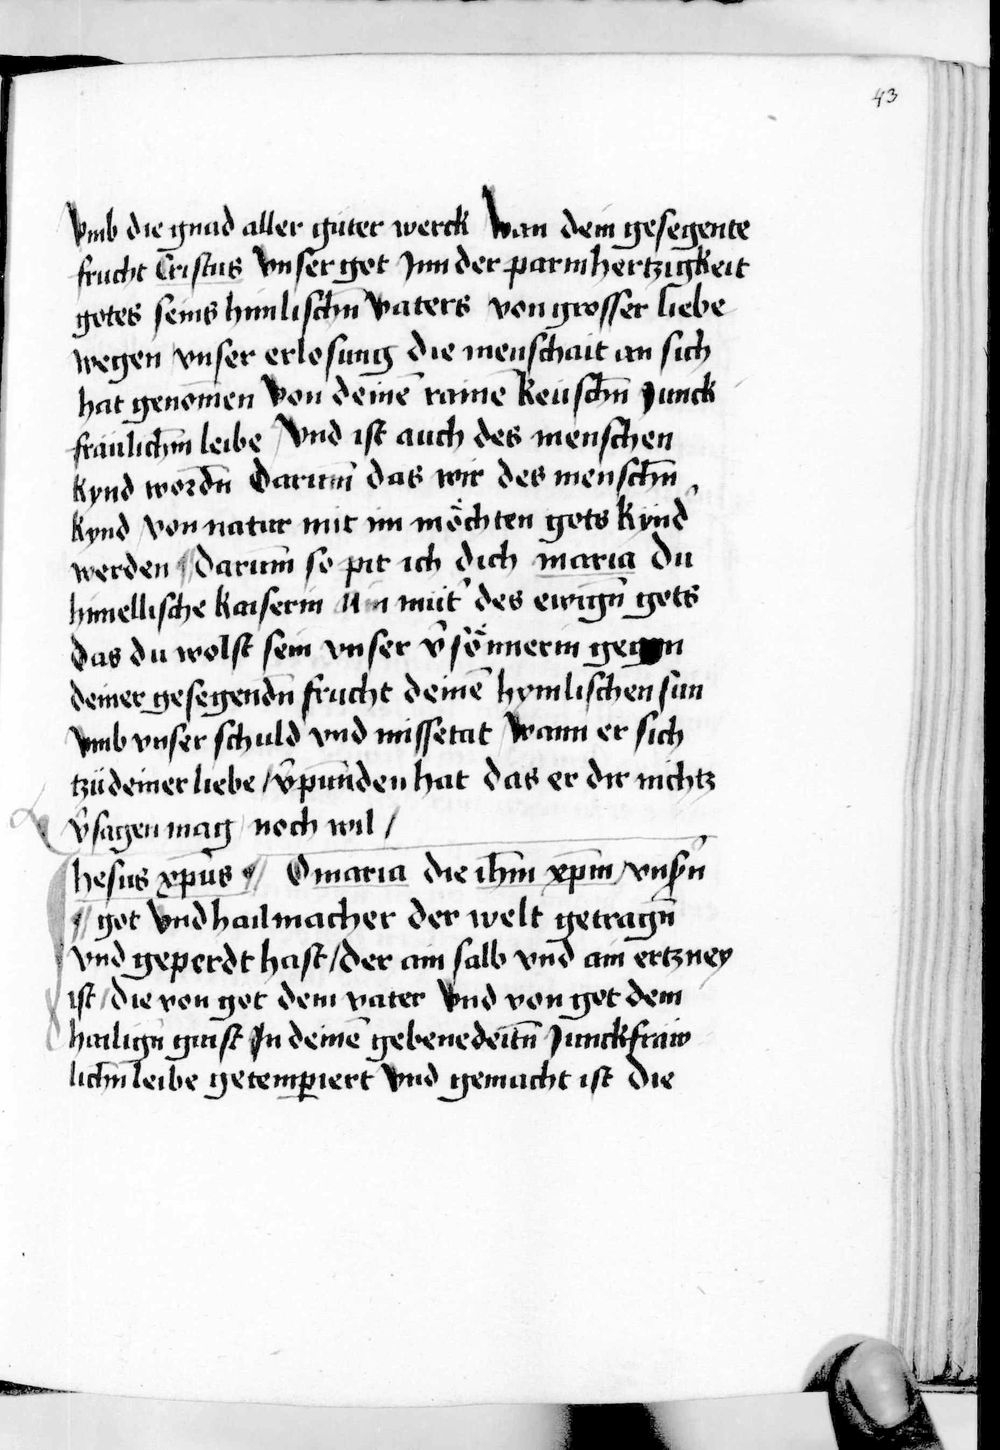 43
vmb die gnad aller guter werck Wan dein gesegente
frucht Cristus vnser got Jnn der parmhertzigkeit
gotes seins himlischn̄ vaters von grosser liebe
wegen vnser erlosung die menschait an sich
hat genom̄en Von deinē rainē keuschn̄ Junck
fräulichm̄ leibe / Vnd ist auch des menschen
kynd wordn̄ Darum̄ das wir des menschn̄
kynd / von natur mit im mo᷑chten gots kynd᷑
werden ¶ Darum̄ so pit ich dich maria du
himellische kaiserin Ain mut᷑ des ewign̄ gots
das du wolst sein vnser v᷑sönnerin gegen
deiner gesegendn̄ frucht deinē hymlischen sun
vmb vnser schuld vnd missetat / wann er sich
tzü deiner liebe / v᷑pun̄den hat das er dir nichtz
v᷑sagen mag / noch wil /
Jhesus xp̄us ¶ O maria die ih̄m xp̄m / vns᷑n
¶ got vnd hailmacher der welt getragn̄
vnd geperdt hast / der ain salb vnd ain ertzney
ist / die von got dem vater vnd von got dem
hailign̄ gaist Jn deinē gebenedeitn̄ Junckfraw
lichn̄ leibe getempiert vnd gemacht ist die